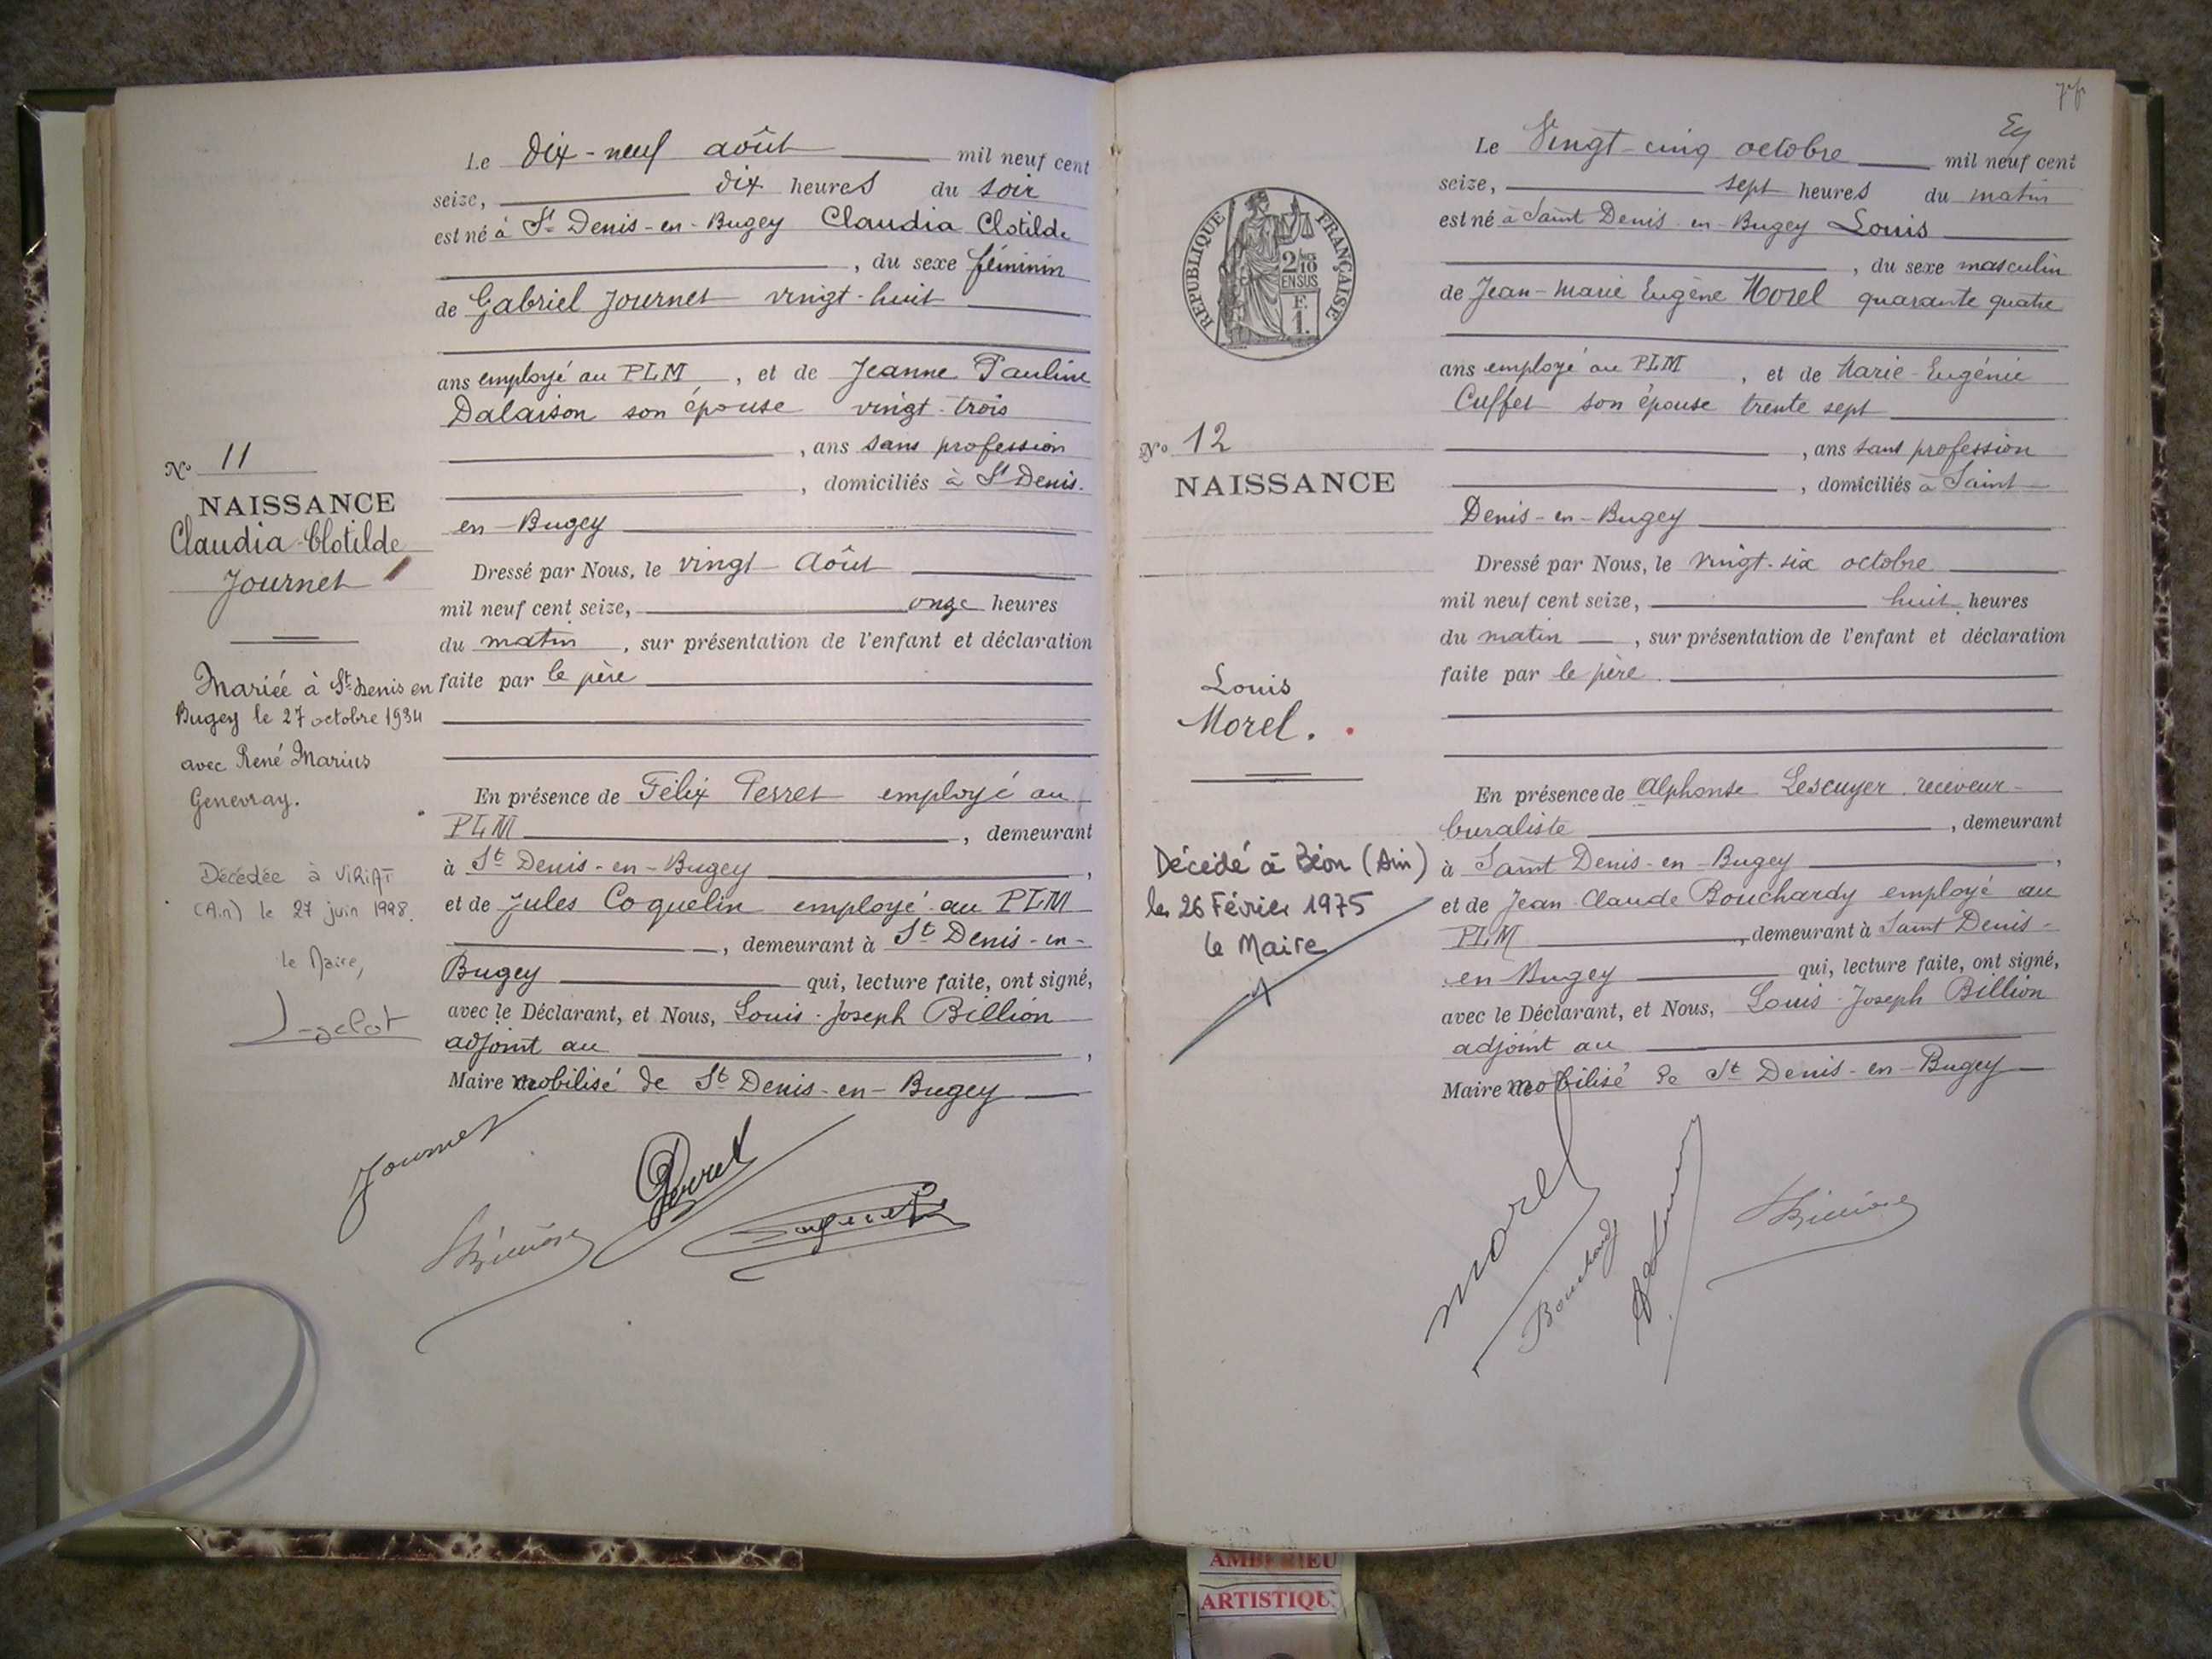 Le dix-neuf août mil neuf cent
seize, dix heures du soir
est né à St Denis-en-Bugey Claudia Clotilde
, du sexe féminin
de Gabriel Journet vingt-huit
ans employé au PLM, et de Jeanne Pauline
Dalaison son épouse vingt-trois
, ans sans profession
, domiciliés à St Denis-
en-Bugey
Dressé par Nous, le vingt Août
mil neuf cent seize, onze heures
du matin, sur présentation de l'enfant et déclaration
faite par le père
En présence de Félix Perret employé au
PLM, demeurant
à St Denis-en-Bugey,
et de Jules Coquelin employé au PLM
, demeurant à St Denis-en-
Bugey qui, lecture faite, ont signé,
avec le Déclarant, et Nous, Louis-Joseph Billion
adjoint au,
Maire mobilisé de St Denis-en-Bugey
Journet
Perret
Billion
No 11
NAISSANCE
Claudia-Clotilde
Journet
Mariée à St Denis en
Bugey le 27 octobre 1934
avec René Marius
Genevray.
Décédée à VIRIAT
(Ain) le 27 juin 1998.
le Maire,
Le Vingt-cinq octobre mil neuf cent
seize, sept heures du matin
est né à Saint Denis-en-Bugey Louis
, du sexe masculin
de Jean-Marie Eugène Morel quarante quatre
ans employé au PLM, et de Marie-Eugénie
Cuffet son épouse trente sept
, ans sans profession
, domiciliés à Saint
Denis-en-Bugey
Dressé par Nous, le vingt-six octobre
mil neuf cent seize, huit heures
du matin, sur présentation de l'enfant et déclaration
faite par le père.
En présence de Alphonse Lescuyer receveur-
buraliste, demeurant
à Saint Denis-en-Bugey,
et de Jean-Claude Bouchardy employé au
PLM, demeurant à Saint Denis-
en Bugey qui, lecture faite, ont signé,
avec le Déclarant, et Nous, Louis-Joseph Billion
adjoint au
Maire mobilisé de St Denis-en-Bugey
Morel
Bouchardy
Billion
RÉPUBLIQUE FRANÇAISE
2/10
EN SUS
F.
1.
No 12
NAISSANCE
Louis
Morel.
Décédé à Béon (Ain)
le 26 Février 1975
le Maire
AMBERIEU
ARTISTIQU